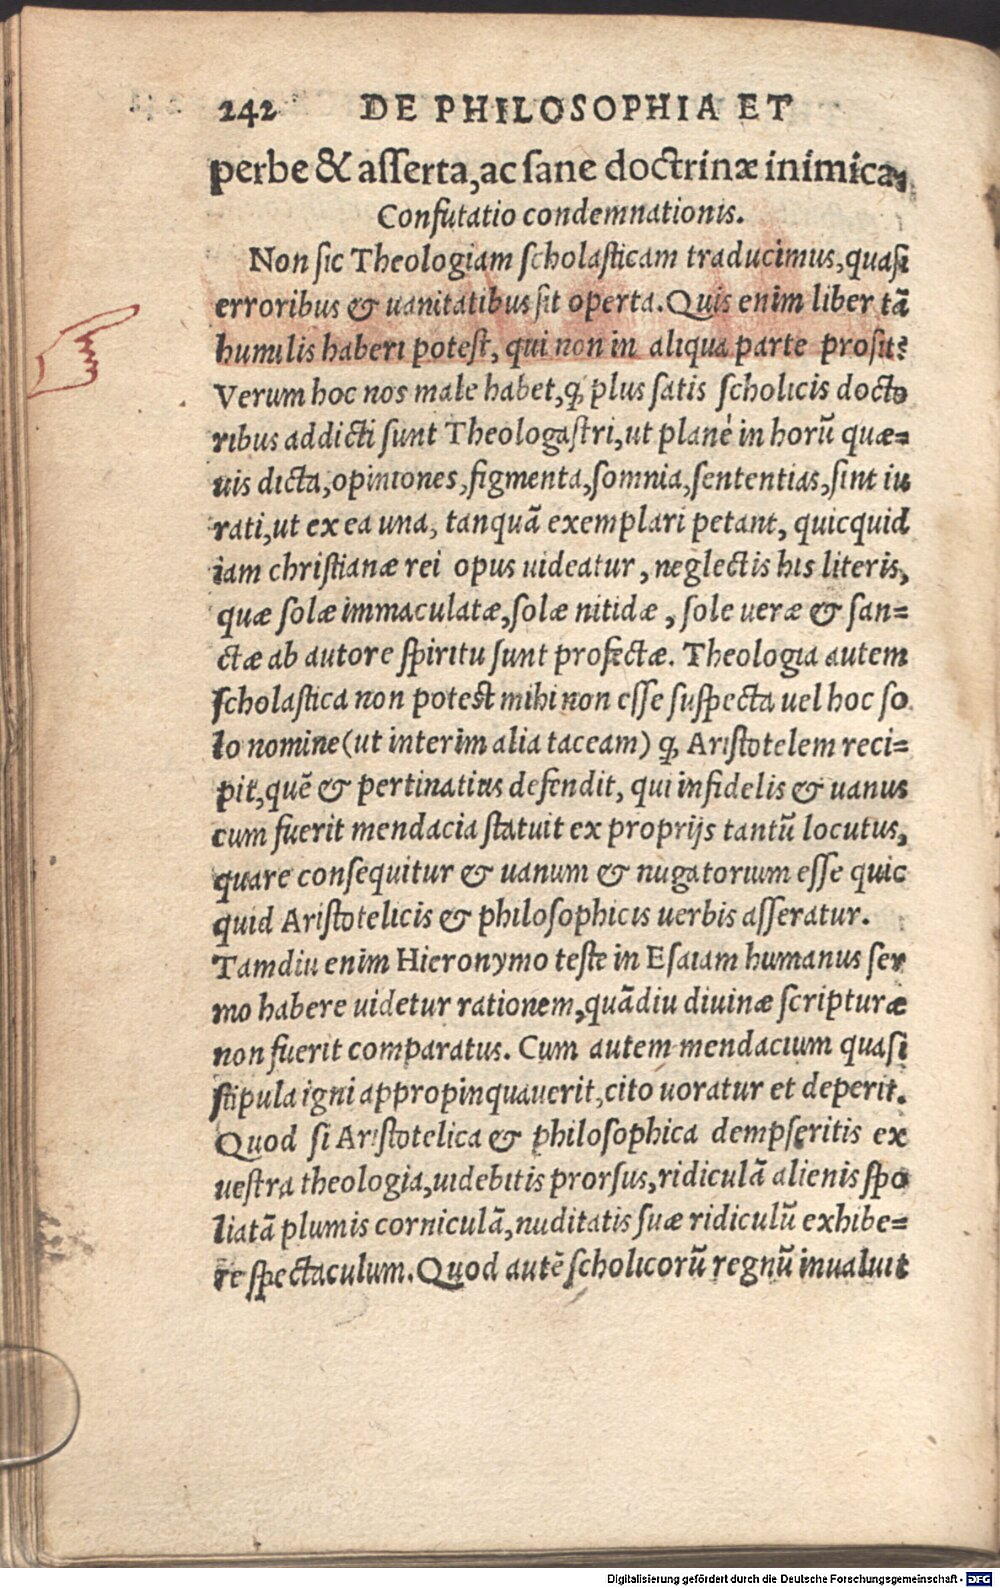 242 DE PHILOSOPHIA ET
perbe & aſſerta, ac ſane doctrinæ inimica.
Confutatio condemnationis.
Non ſic Theologiam ſcholaſticam traducimus, quaſi
erroribus & uanitatibus ſit operta. Quis enim liber tā
humilis haberi poteſt, qui non in aliqua parte proſit?
Verum hoc nos male habet, ꝙ plus ſatis ſcholicis docto
ribus addicti ſunt Theologaſtri, ut planè in horū quæ=
uis dicta, opiniones, figmenta, ſomnia, ſententias, ſint iu
rati, ut ex ea una, tanquā exemplari petant, quicquid
iam chriſtianæ rei opus uideatur, neglectis his literis,
quæ ſolæ immaculatæ, ſolæ nitidæ, ſole ueræ & ſan=
ctæ ab autore ſpiritu ſunt profectæ. Theologia autem
ſcholaſtica non potest mihi non eſſe ſuſpecta uel hoc ſo
lo nomine (ut interim alia taceam) ꝙ Ariſtotelem reci=
pit, quē & pertinatius defendit, qui infidelis & uanus
cum fuerit mendacia ſtatuit ex proprijs tantū locutus,
quare conſequitur & uanum & nugatorium eſſe quic
quid Ariſtotelicis & philoſophicis uerbis aſſeratur.
Tamdiu enim Hieronymo teſte in Eſaiam humanus ſer
mo habere uidetur rationem, quādiu diuinæ ſcripturæ
non fuerit comparatus. Cum autem mendacium quaſi
ſtipula igni appropinquauerit, cito uoratur et deperit.
Quod ſi Ariſtotelica & philoſophica dempſeritis ex
ueſtra theologia, uidebitis prorſus, ridiculā alienis ſpo
liatā plumis corniculā, nuditatis ſuæ ridiculū exhibe=
re ſpectaculum. Quod autē ſcholicorū regnū inualuit
Digitalisierung gefördert durch die Deutsche Forschungsgemeinschaft - DFG